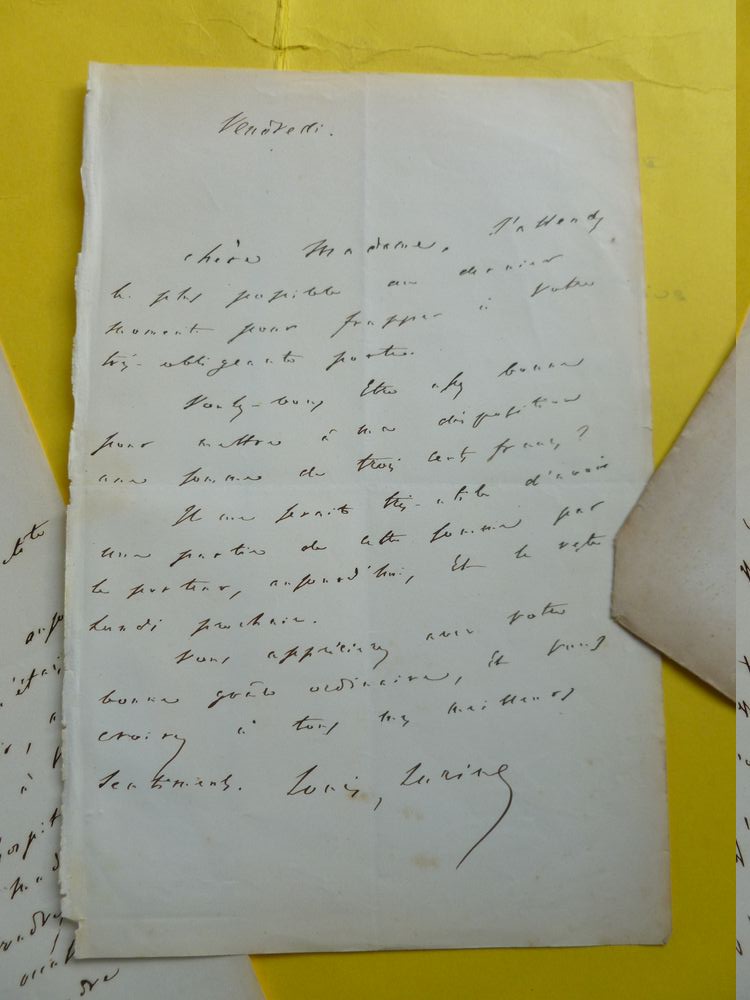 Vendredi.
chère Madame, J'attends
le plus possible au dernier
moment pour frapper à votre
très-obligeante porte.
Voulez-vous être assez bonne
pour mettre à ma disposition
une somme de trois cents francs ?
Il me serait très-utile d'avoir
une partie de cette somme par
le porteur, aujourd'hui, et le reste
lundi prochain.
Vous apprécierez avec votre
bonne grâce ordinaire, et vous
croirez à tous mes meilleurs
sentiments. Louis Lurine